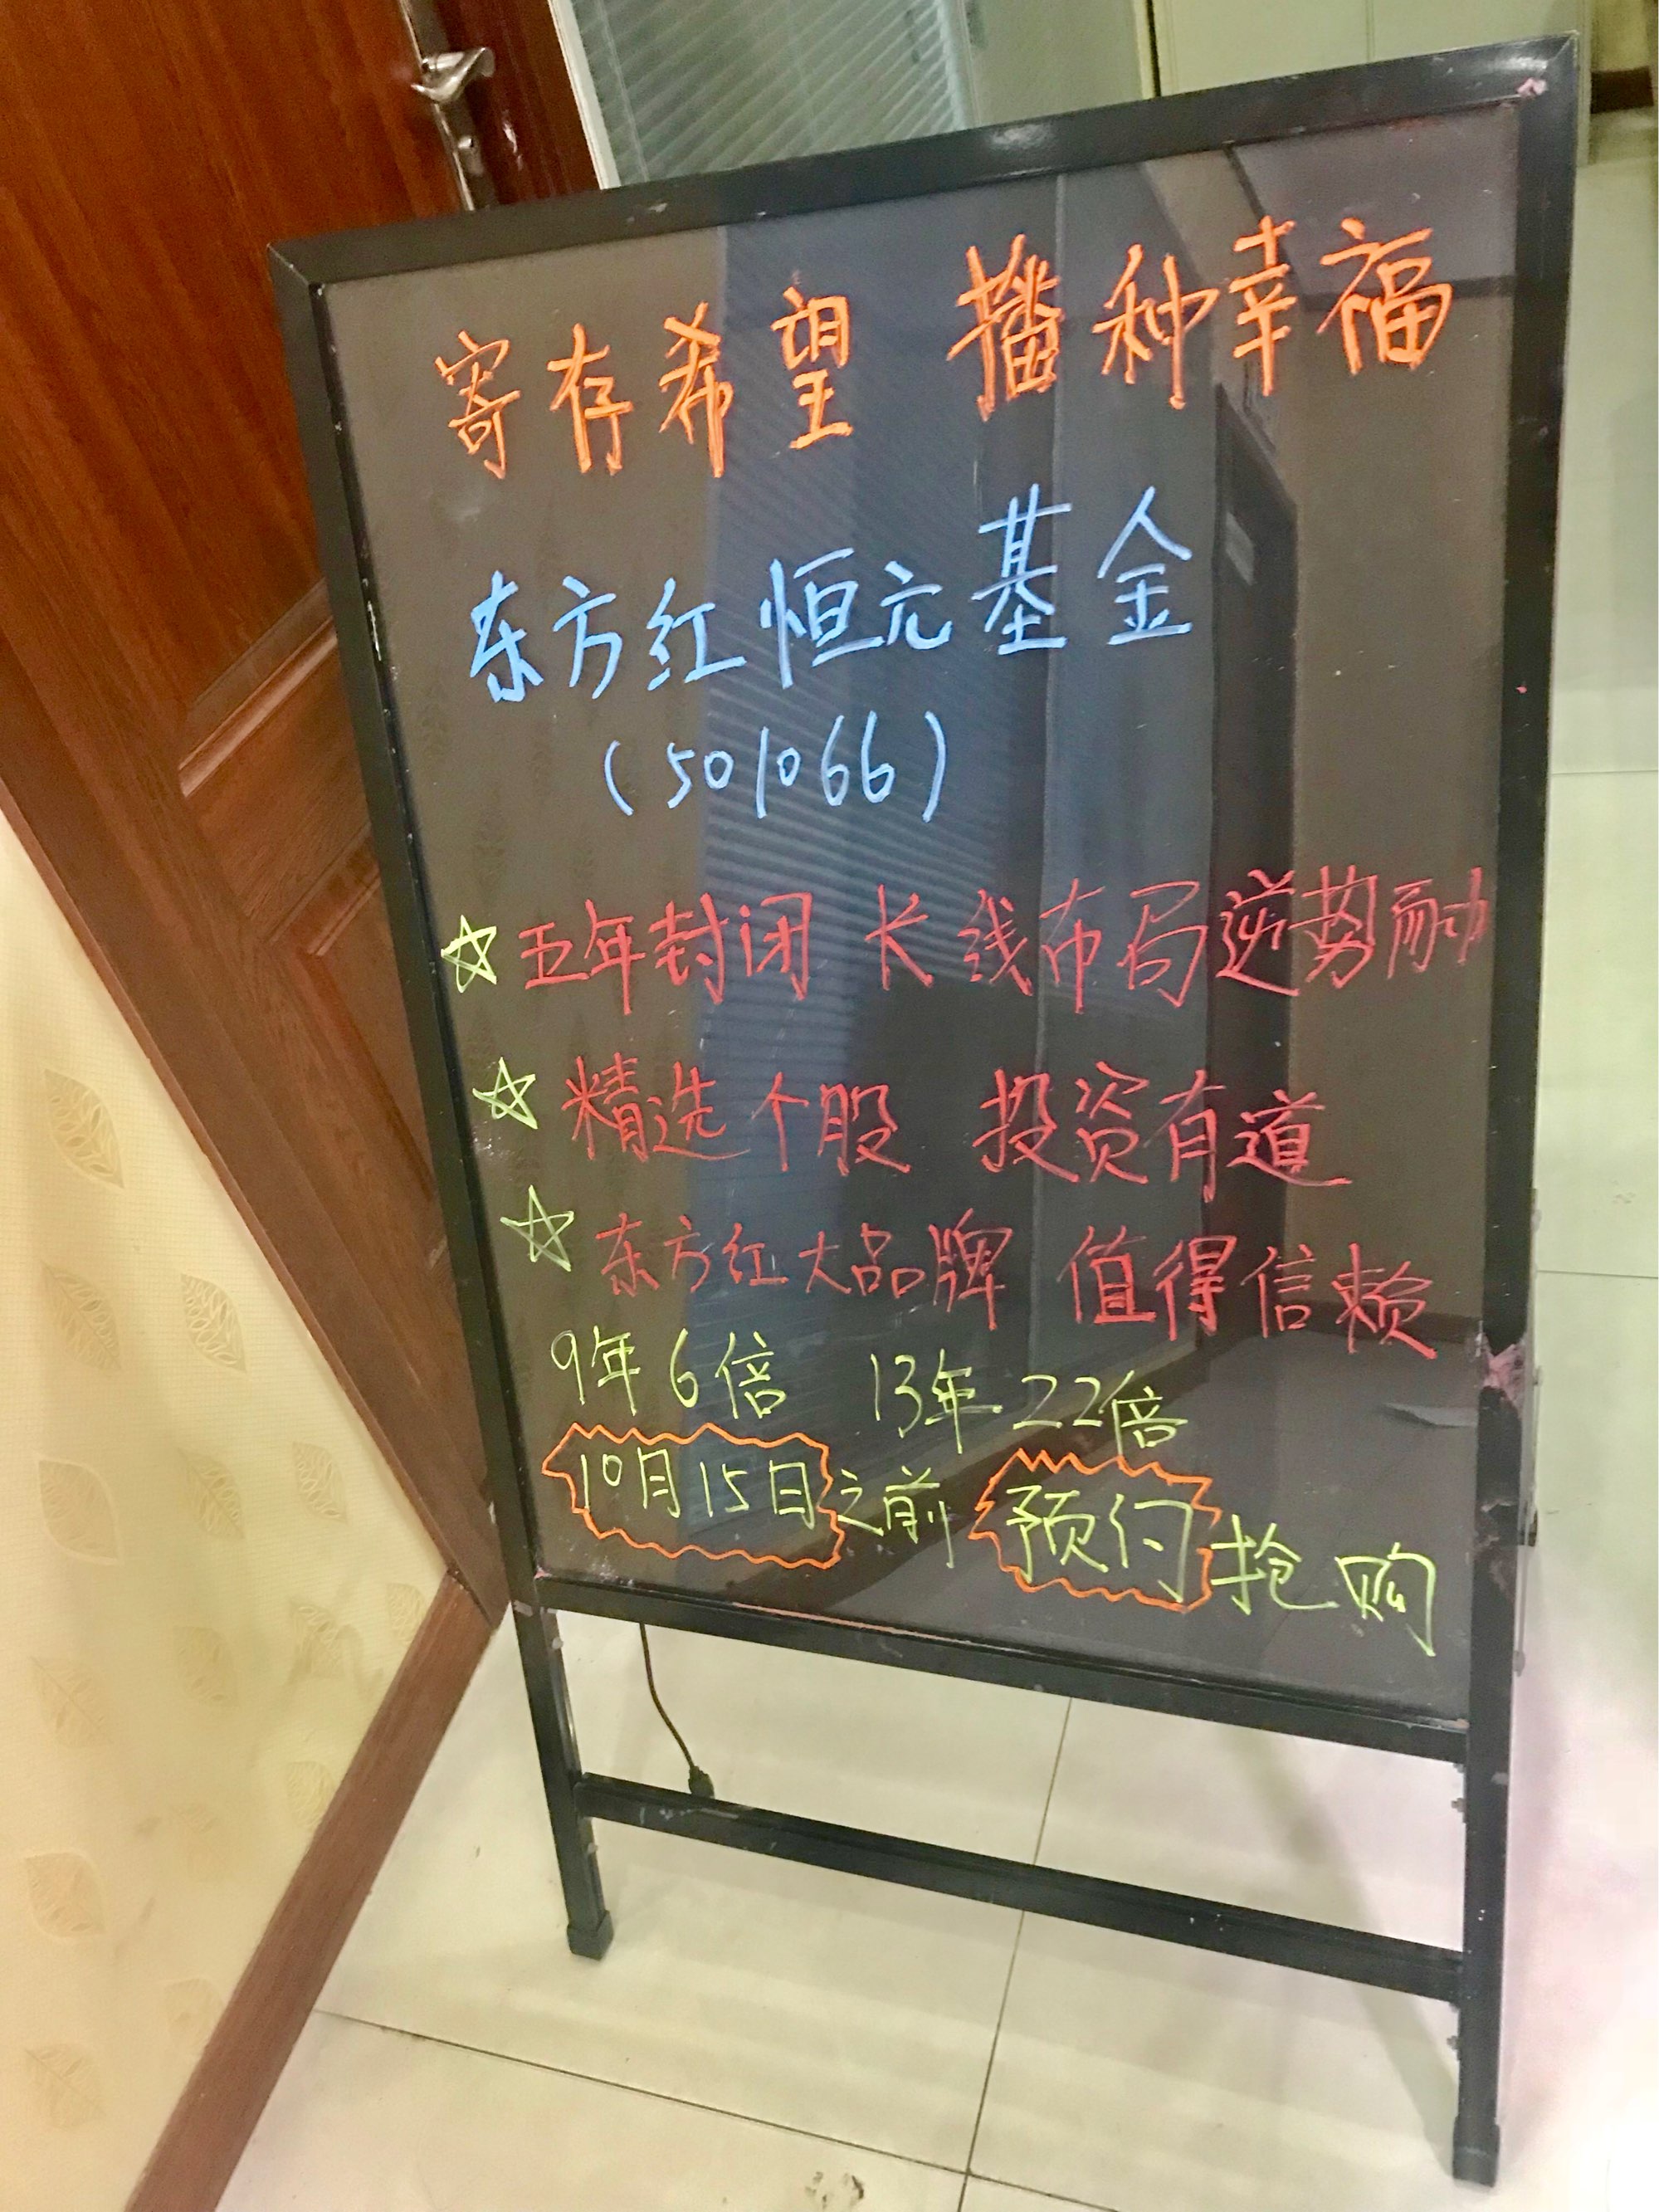 寄存希望 播种幸福
东方红恒元基金
(501066)
☆ 五年封闭 长线布局逆势而动
☆ 精选个股 投资有道
☆ 东方红大品牌 值得信赖
9年6倍 13年22倍
10月15日之前 预约抢购